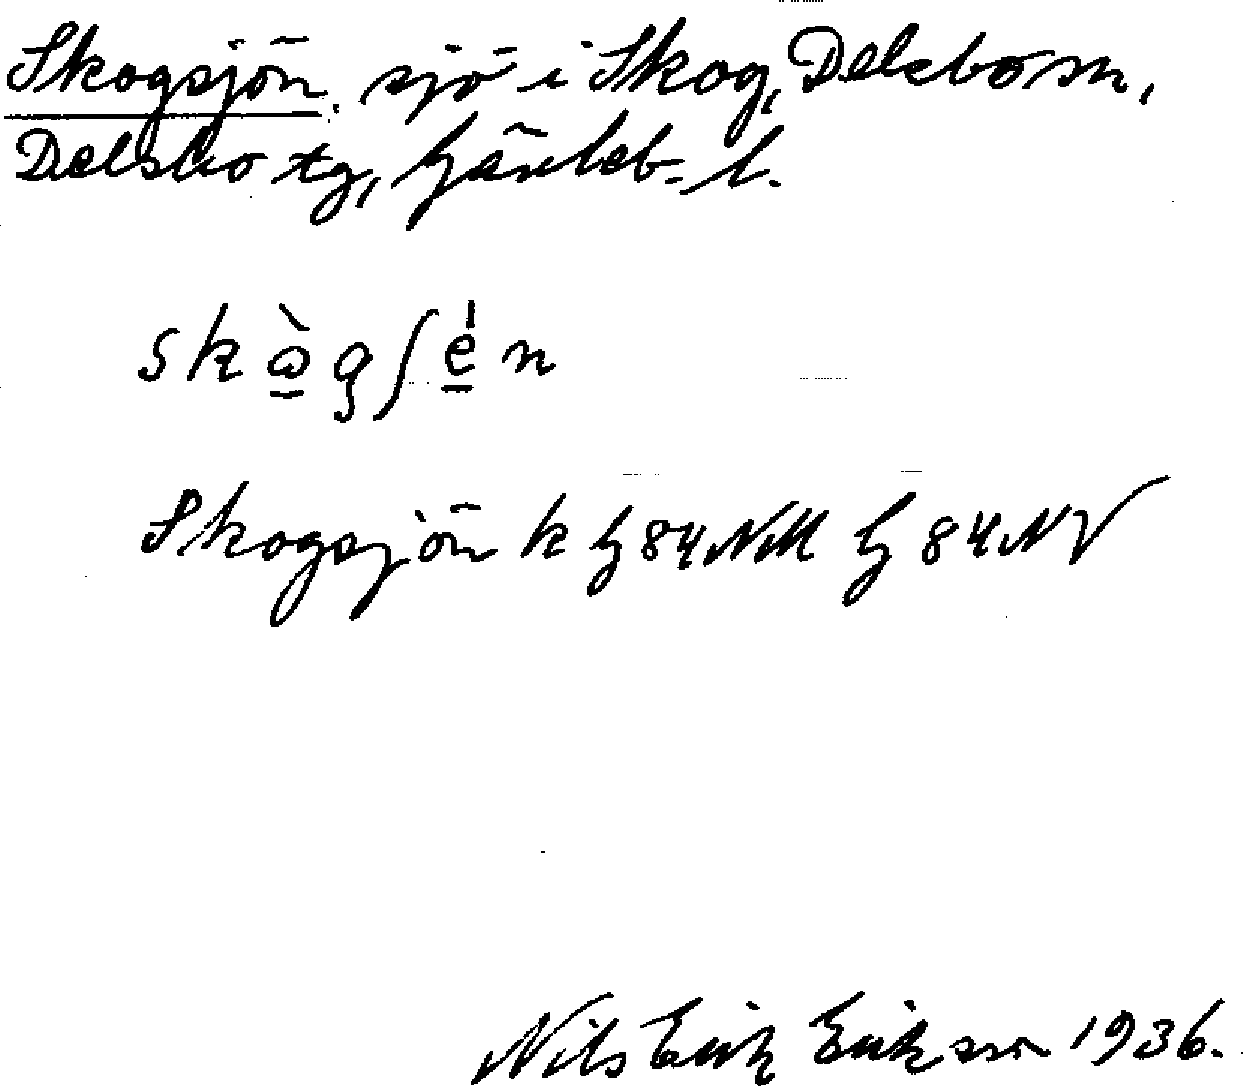 Skogsjön, sjö i Skog, Delsbo sn,
Delsbo tg, Gävleb. l.
skògʃén
Skogsjön k G 84 NM G 84 NV
Nils Erik Eriksson 1936.